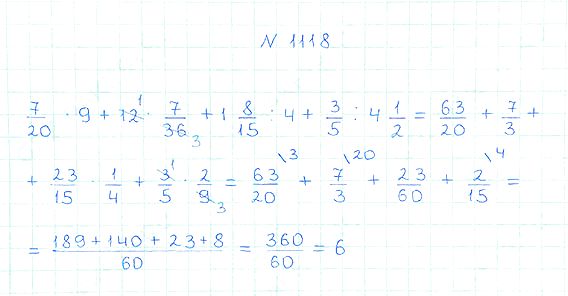 N 1118
7/20 · 9 + 12¹ · 7/36₃ + 1 8/15 : 4 + 3/5 : 4 1/2 = 63/20 + 7/3 +
+ 23/15 · 1/4 + 3¹/5 · 2/9₃ = 63\3/20 + 7\20/3 + 23/60 + 2\4/15 =
= 189+140+23+8/60 = 360/60 = 6